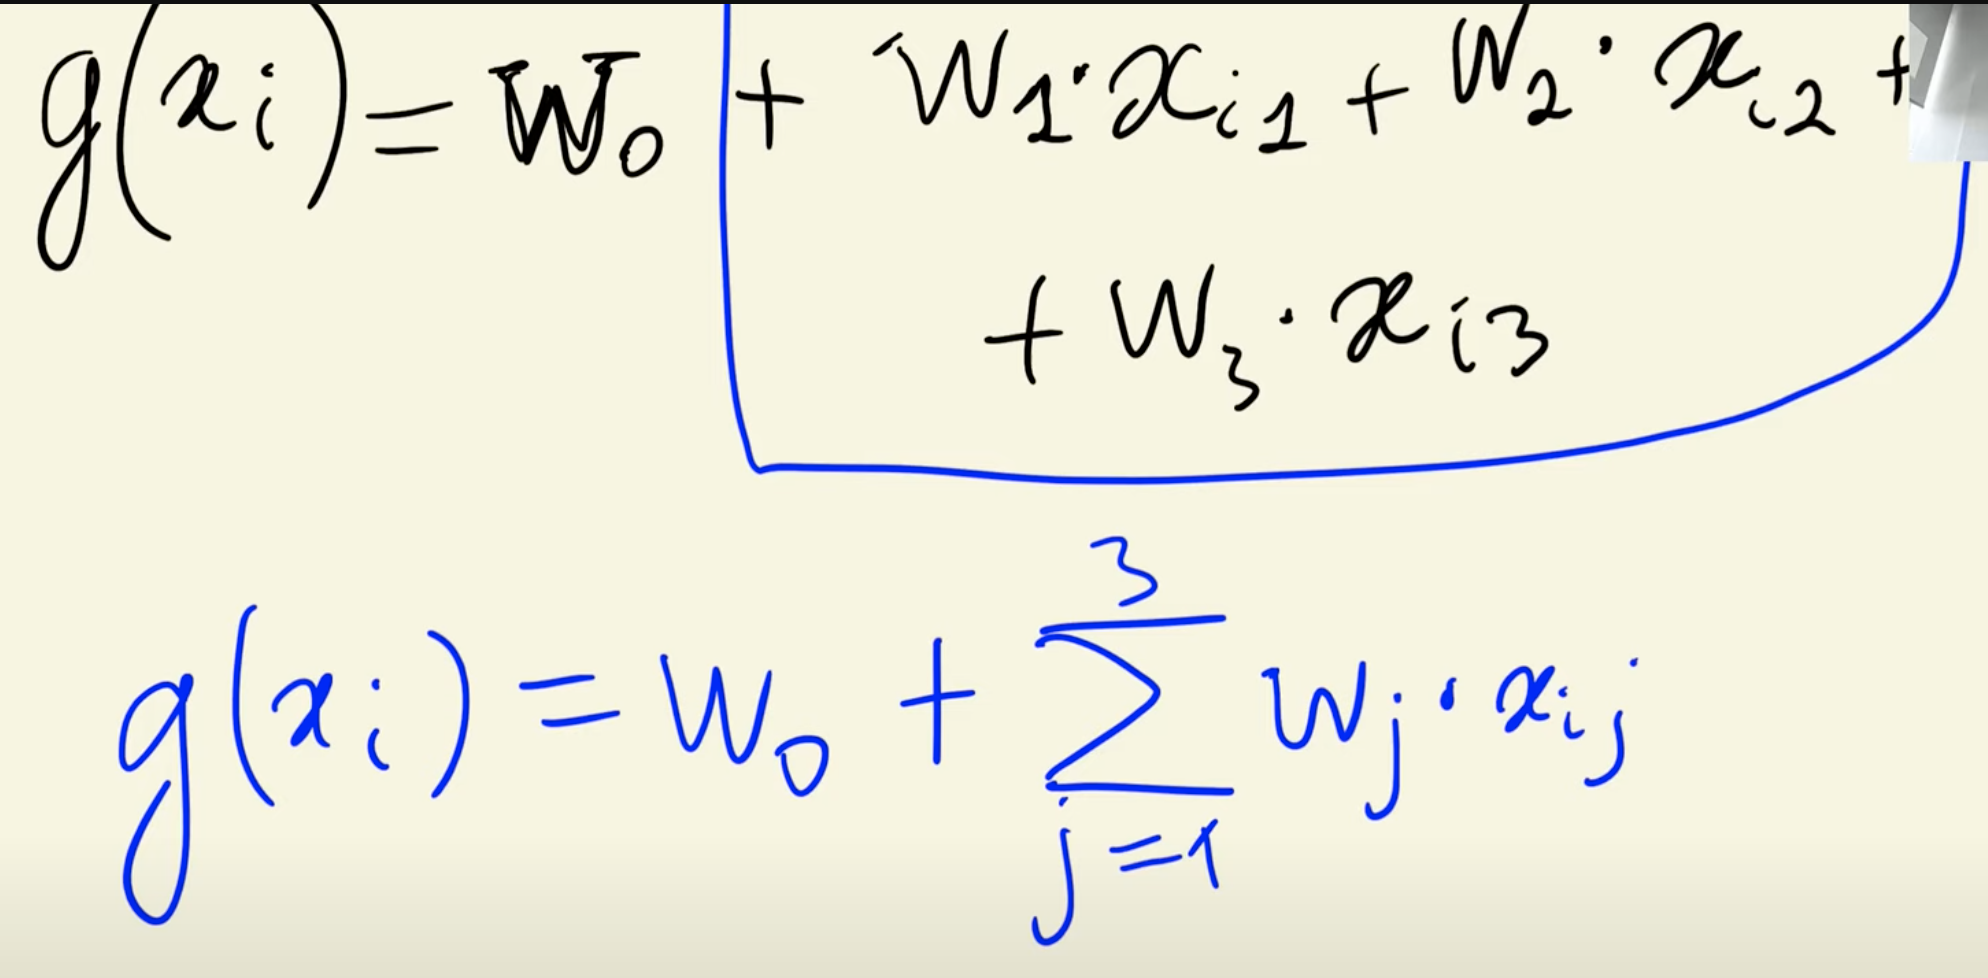 g(xᵢ) = w₀ + w₁·xᵢ₁ + w₂·xᵢ₂ +
+ w₃·xᵢ₃
3
g(xᵢ) = w₀ + ∑ wⱼ·xᵢⱼ
j=1